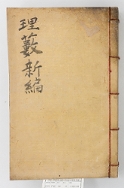 理藪新編